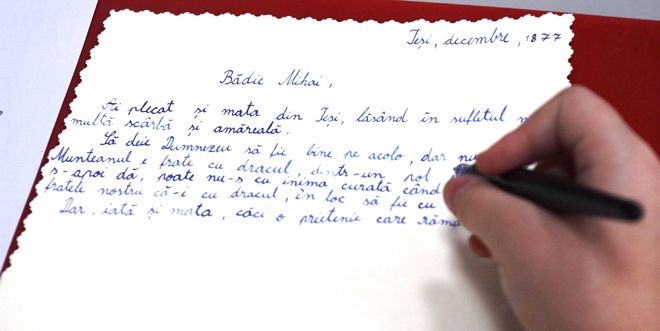 Ieși, decembre, 1877
Bădie Mihai,
Ai plecat și mata din Ieși, lăsând în sufletul
multă scârbă și amăreală.
Să deie Dumnezeu să fie bine pe acolo, dar nu
Munteanul e frate cu dracul, dintr-un pol
s-apoi dă, poate nu-s cu inima curată când
fratele nostru că-i cu dracul, în loc să fie cu
Dar, iată și mata, căci o prietenie care